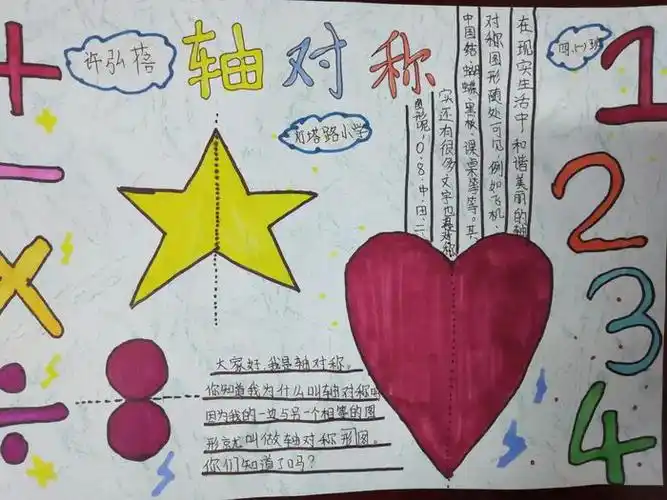 轴对称
许弘蓓
四.(一)班
灯塔路小学
在现实生活中和谐美丽的轴
对称图形随处可见,例如飞机、
中国结、蝴蝶、黑板、课桌等等。其
实还有很多文字也是对称
图形呢,0.8.中.田.二
大家好,我是轴对称。
你知道我为什么叫轴对称吗
因为我的一边与另一个相等的图
形就叫做轴对称形图。
你们知道了吗?
+
-
×
÷
1
2
3
4